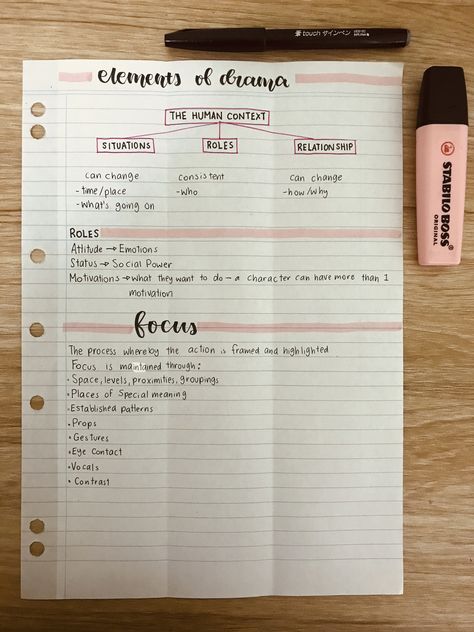 touch サインペン
elements of drama
THE HUMAN CONTEXT
SITUATIONS ROLES RELATIONSHIP
can change consistent can change
-time/place -who -how/why
-what's going on
STABILO BOSS
ORIGINAL
ROLES
Attitude → Emotions
Status → Social Power
Motivations → what they want to do - a character can have more than 1
motivation
focus
The process whereby the action is framed and highlighted
Focus is maintained through:
• Space, levels, proximities, groupings
• Places of special meaning
• Established patterns
• Props
• Gestures
• Eye Contact
• Vocals
• Contrast